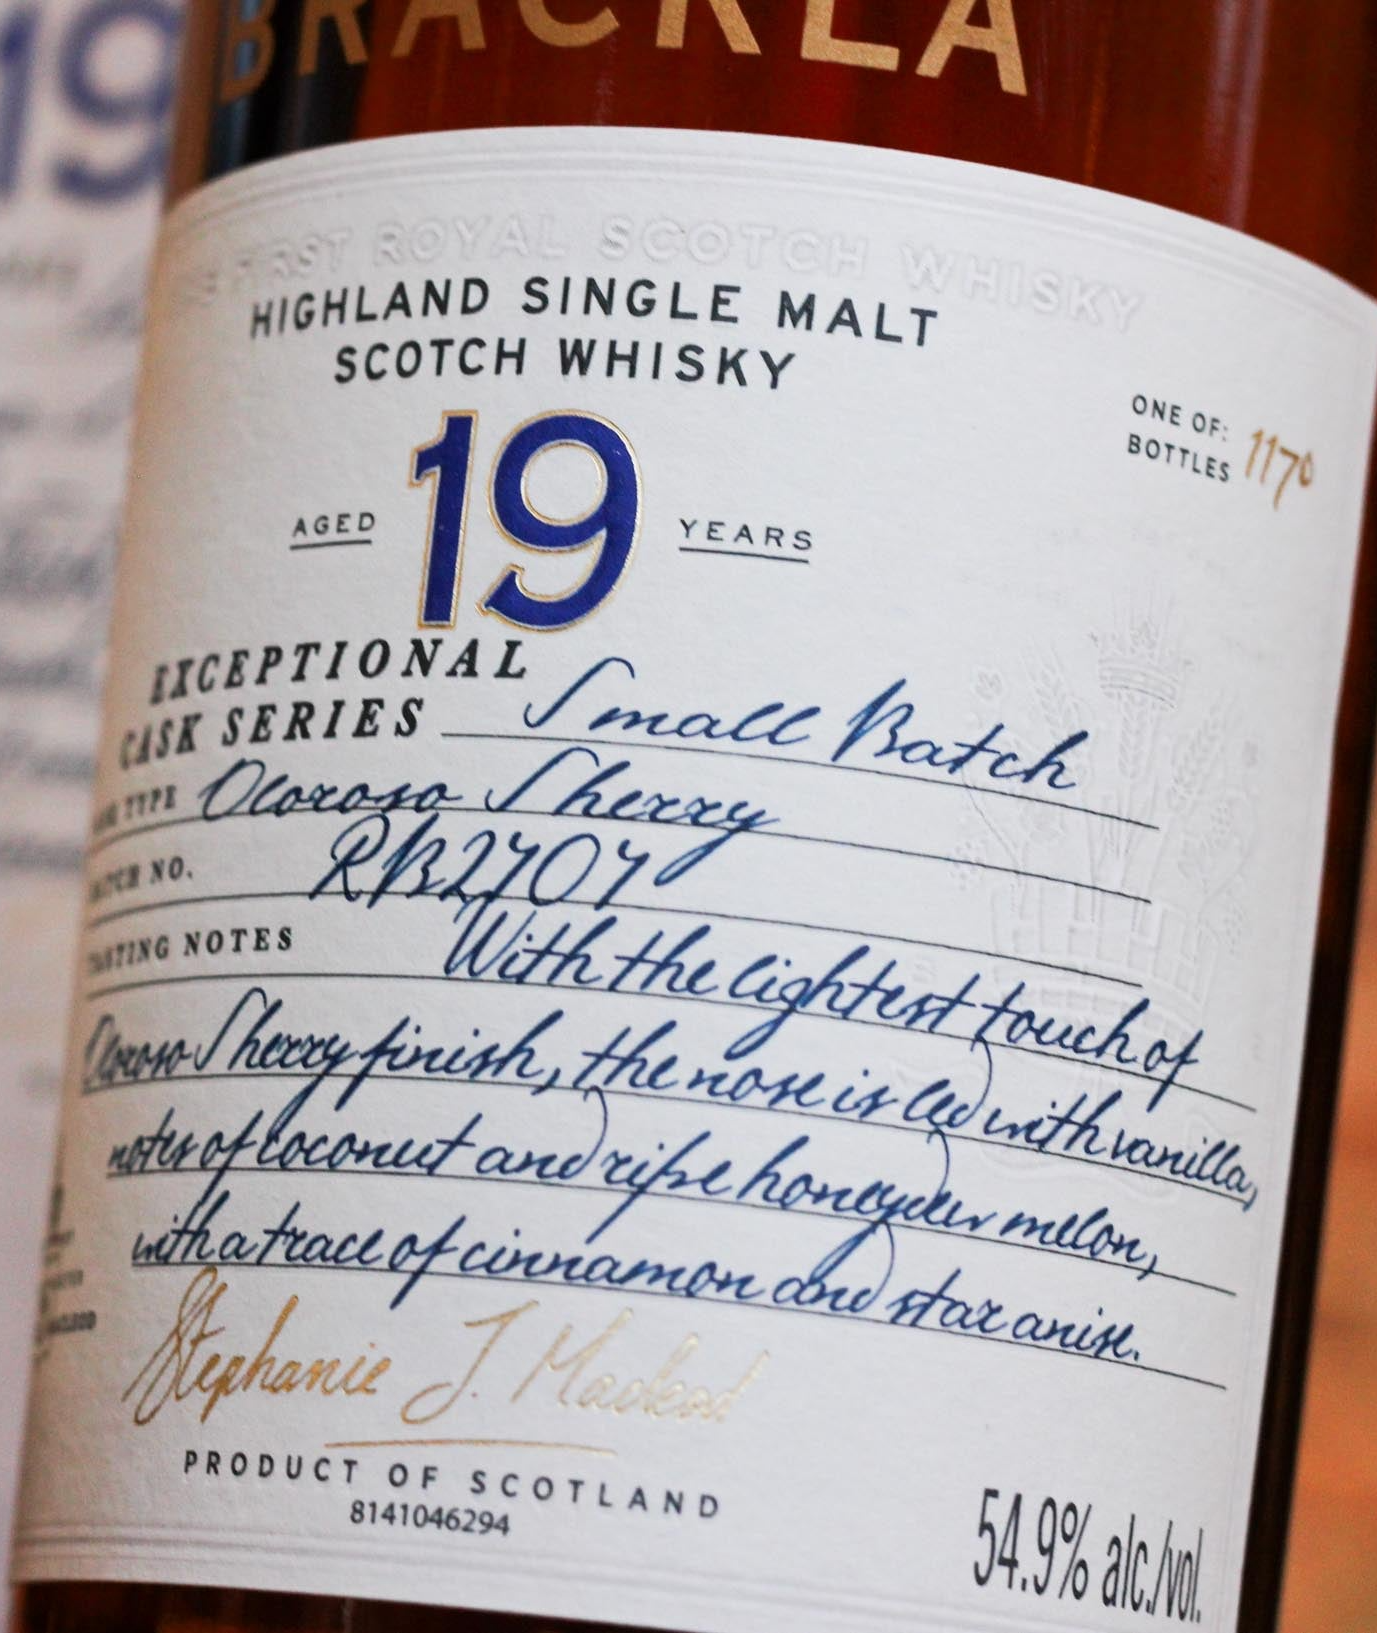 BRACKLA
THE FIRST ROYAL SCOTCH WHISKY
HIGHLAND SINGLE MALT
SCOTCH WHISKY
ONE OF: 1170
BOTTLES
AGED 19 YEARS
EXCEPTIONAL
CASK SERIES Small Batch
TYPE Oloroso Sherry
NO. RB2707
TASTING NOTES With the lightest touch of
Oloroso Sherry finish, the nose is led with vanilla,
notes of coconut and ripe honeydew melon,
with a trace of cinnamon and star anise.
Stephanie J. Macleod
PRODUCT OF SCOTLAND
8141046294
54.9% alc./vol.
19